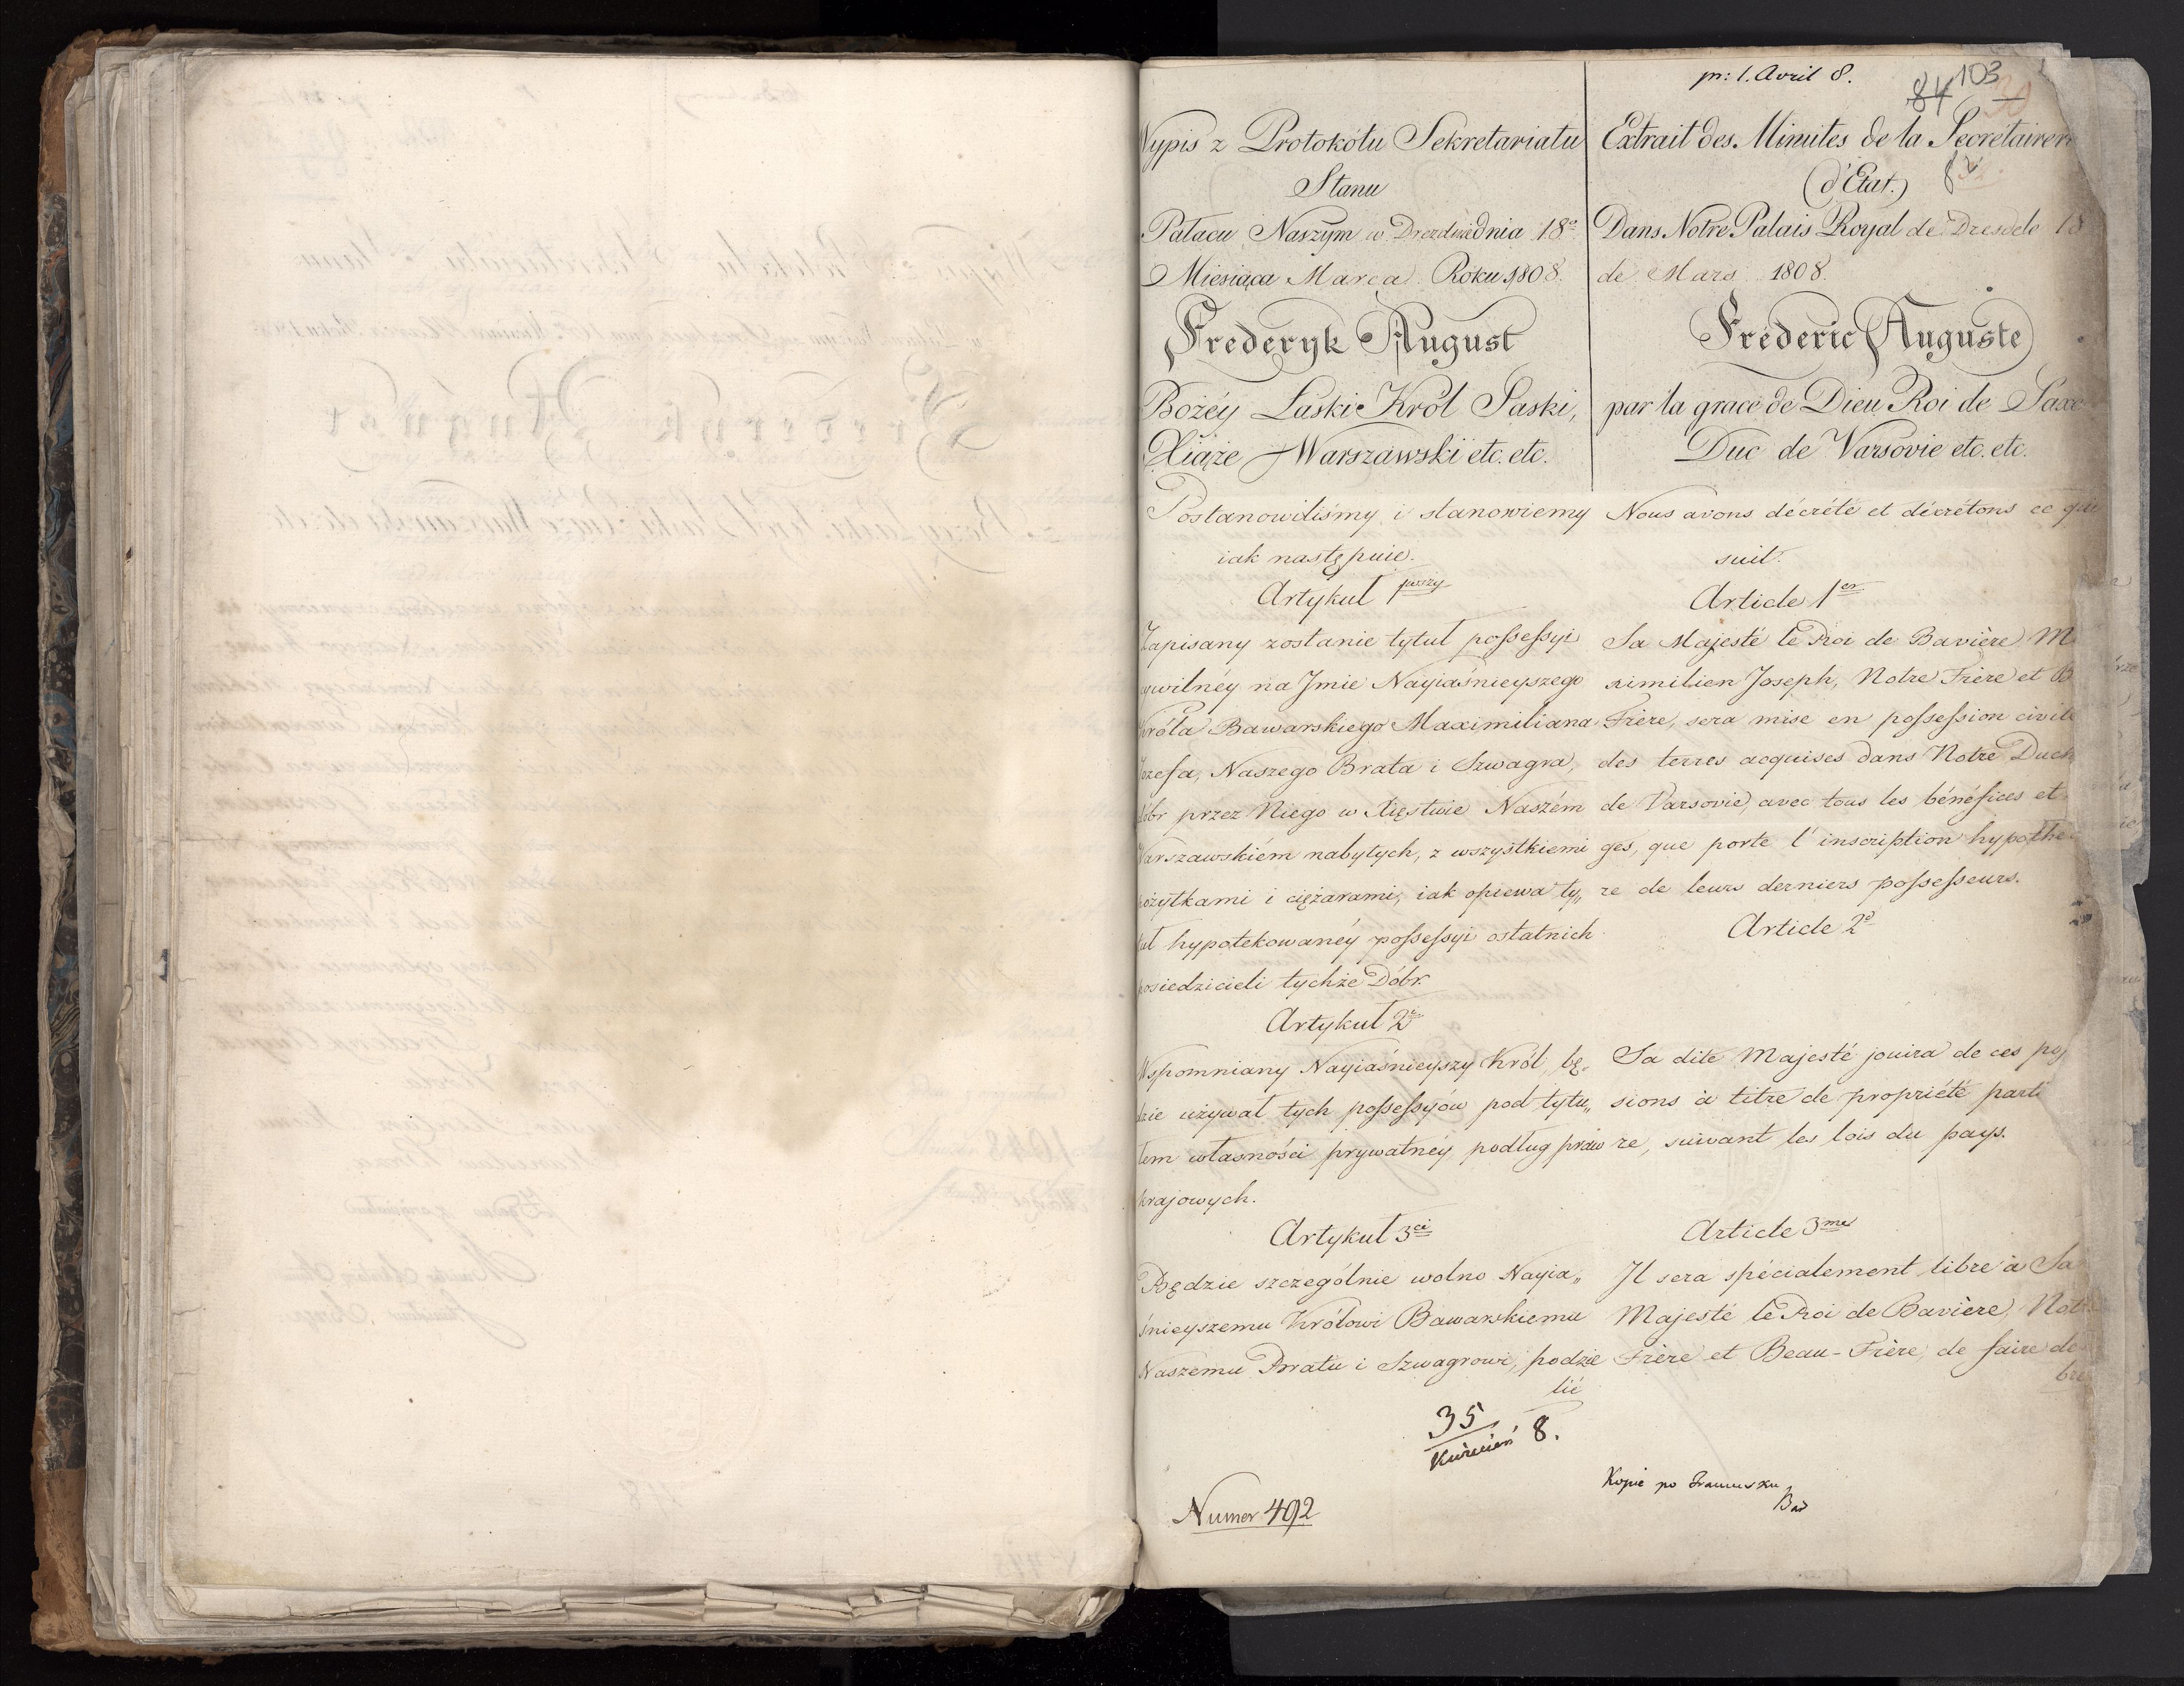 pr: 1. Avril 8.
103
84
Wypis z Protokółu Sekretariatu
Stanu
Pałacu Naszym w Dreźnie dnia 18o
Miesiąca Marca Roku 1808.
Frederyk August
Bożéy Łaski Król Saski,
Xiąże Warszawski etc. etc.
Postanowiliśmy i stanowiemy
iak następuie.
Artykuł 1wszy
Zapisany zostanie tytuł possessyi
cywilnéy na Jmie Nayiaśnieyszego
Króla Bawarskiego Maximiliana
Józefa, Naszego Brata i Szwagra,
dóbr przez Niego w Xięstwie Naszém
Warszawskiém nabytych, z wszystkiemi
pożytkami i ciężarami, iak opiewa ty„
tuł hypotekowanéy possessyi ostatnich
posiedzicieli tychże Dóbr.
Artykuł 2i
Wspomniany Nayiaśnieyszy Król, bę„
dzie używał tych possessyów pod tytu„
łem własności prywatnéy podług praw
krajowych.
Artykuł 3ci
Będzie szczególnie wolno Nayia„
śnieyszemu Królowi Bawarskiemu
Naszemu Bratu i Szwagrowi, podzie
lić
35
Kwiecień 8.
Numer 492
Extrait des Minutes de la Secretairer
(d'Etat.)
Dans Notre Palais Royal de Dresde le 18
de Mars 1808.
Fréderic Auguste
par la grace de Dieu Roi de Saxe
Duc de Varsovie etc. etc.
Nous avons décrété et décrétons ce qui
suit.
Article 1er
Sa Majesté le Roi de Bavière, M
ximilien Joseph, Notre Frère et B
Frère, sera mise en possession civile
des terres acquises dans Notre Duch
de Varsovie, avec tous les bénéfices et
ges, que porte l'inscription hypothé
re de leurs derniers possesseurs.
Article 2d
Sa dite Majesté jouira de ces po
sions à titre de propriété parti
re, suivant les lois du pays.
Article 3me
Il sera spécialement libre à Sa
Majesté le Roi de Bavière, Not
Frère et Beau-Frère, de faire de
Kopie po Francusku